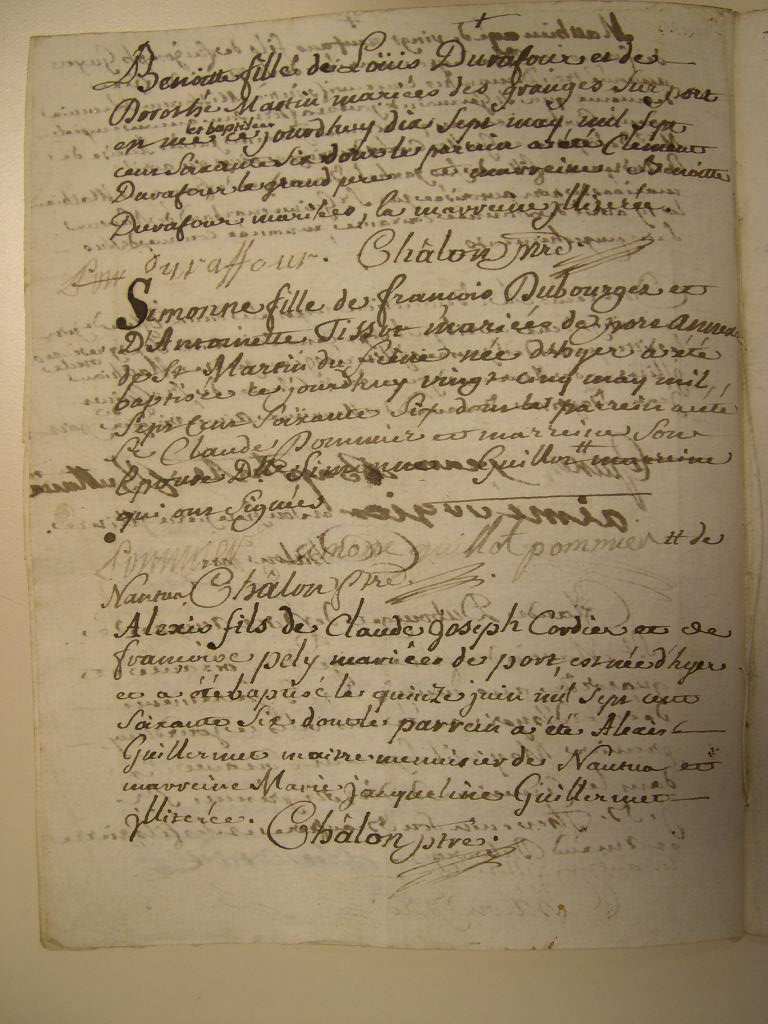 Benoitte fille de Loüis Durafour et de
Dorothé Martin mariées des granges sur port
et baptisée
en née ce jourdhuy dix sept may mil sept
cent soixante six dont le parrein a été Clement
Durafour le grand pere et marreine Benoitte
Durafour mariées, la marreine jlliterée.
duraffour. Châlon ptre
Simonne fille de francois Dubourget et
D'Antoinette Tissot mariées de port annexe
de St Martin du frene née d'hyer a été
baptisée ce jourdhuy vingt cinq may mil
sept cent soixante six dont le parrein a été
Sr Claude Pommier et marreine son
Epouse Dlle Simonne Guillot tt marreine
qui ont signés
Pommier simonne guillot pommier tt de
Nantua, Châlon ptre.
Alexis fils de Claude Joseph Cordier et de
francoise pely mariées de port, est née d'hyer
et a été baptisé le quinze juin mil sept cent
soixante six dont le parrein a été Alexis
Guillermet maitre menuisier de Nantua et
marreine Marie jacqueline Guillermet
jlliterée. Châlon ptre.